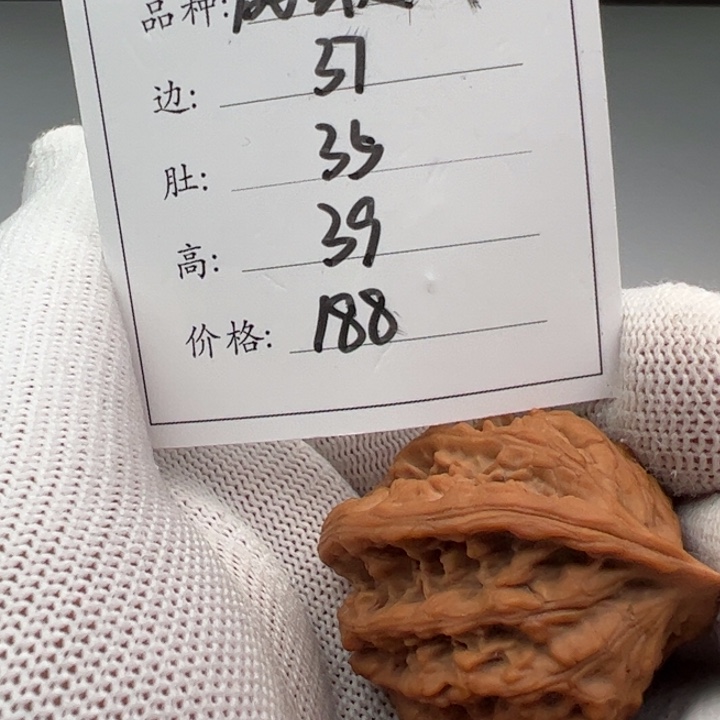 品种:
边: 37
肚: 35
高: 39
价格: 188